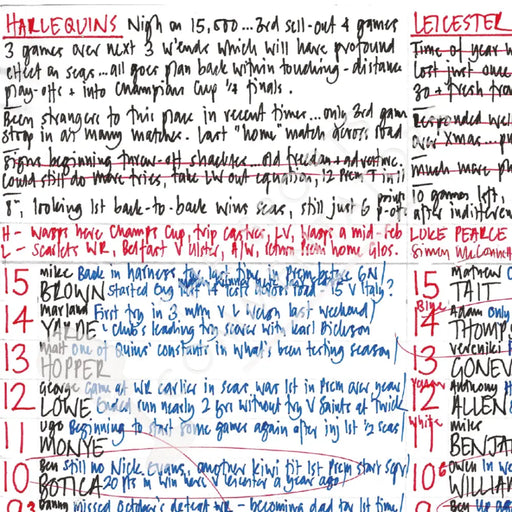 HARLEQUINS Nigh on 15,000...3rd sell-out 4 games
3 games over next 3 w'ends which will have profound
effect on seas...all goes plan back within touching-distance
play-offs + into Champions Cup 1/4 finals.
Been strangers to this place in recent times...only 3rd game
Stoop in as many matches. Last "home" match across road
Signs beginning throw-off shackles...old freedom + adventure.
Could still do more tries, take LW out equation, 12 Prem T in 11
8th, looking 1st back-to-back wins seas, still just 6 points p-off
H - Wasps here Champs Cup, trip Castres, LV, Wasps a mid-Feb
L - Scarlets WR, Belfast v Ulster, A/W, return Prem home Glos.
15 Mike BROWN Back in harness, last time in Prem before 6N
started Eng last 14 tests before 15 v Italy?
14 Maryland YARDE First try in 3 mths v last weekend
- club's leading try scorer with Karl Dickson
13 Matt HOPPER one of Quins' constants in what's been testing season
12 George LOWE Game at WR earlier in seas was 1st in Prem over year
Ended run nearly 2 yrs without try v Saints at Twick
11 Ugo MONYE Beginning to start some games again after inj 1st 1/2 seas
10 Ben BOTICA still no Nick Evans, another kiwi flt 1st Prem start Sept
20 pts in win here v Leicester a year ago
9 Danny missed October's defeat WR - becoming dad for 1st time
LEICESTER
Time of year
Lost just once
30 + fresh from
Responded well
over Xmas...
much more
10 games left,
after indifferent
LUKE PEARCE
Simon McConnell
15 Mathew TAIT
14 Blue Adam THOMP Only
13 Vereniki GONEV
12 Anthony ALLEN
11 White Miles BENJA
10 Owen WILLIA In
9 Ben